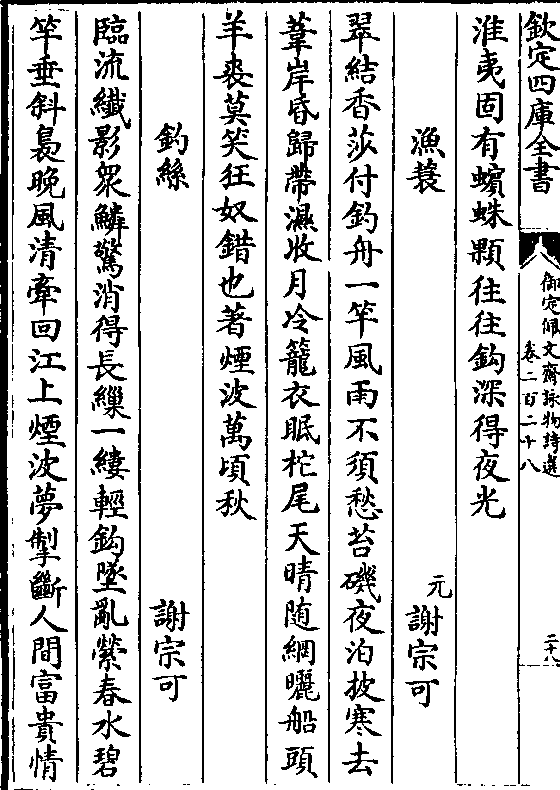 欽定四庫全書
御定佩文齋詠物詩選
卷二百二十八
二十八
淮夷固有蠙蛛顆往往鈎深得夜光
漁蓑
元謝宗可
翠結香莎付釣舟一竿風雨不須愁苔磯夜泊披寒去
葦岸昏歸帶濕收月冷籠衣眠柁尾天晴随網曬船頭
羊裘莫笑狂奴錯也著煙波萬頃秋
釣絲
謝宗可
臨流纖影衆鱗驚消得長繅一縷輕鈎墜亂縈春水碧
竿垂斜裊晚風清牽回江上煙波夢掣斷人間富貴情